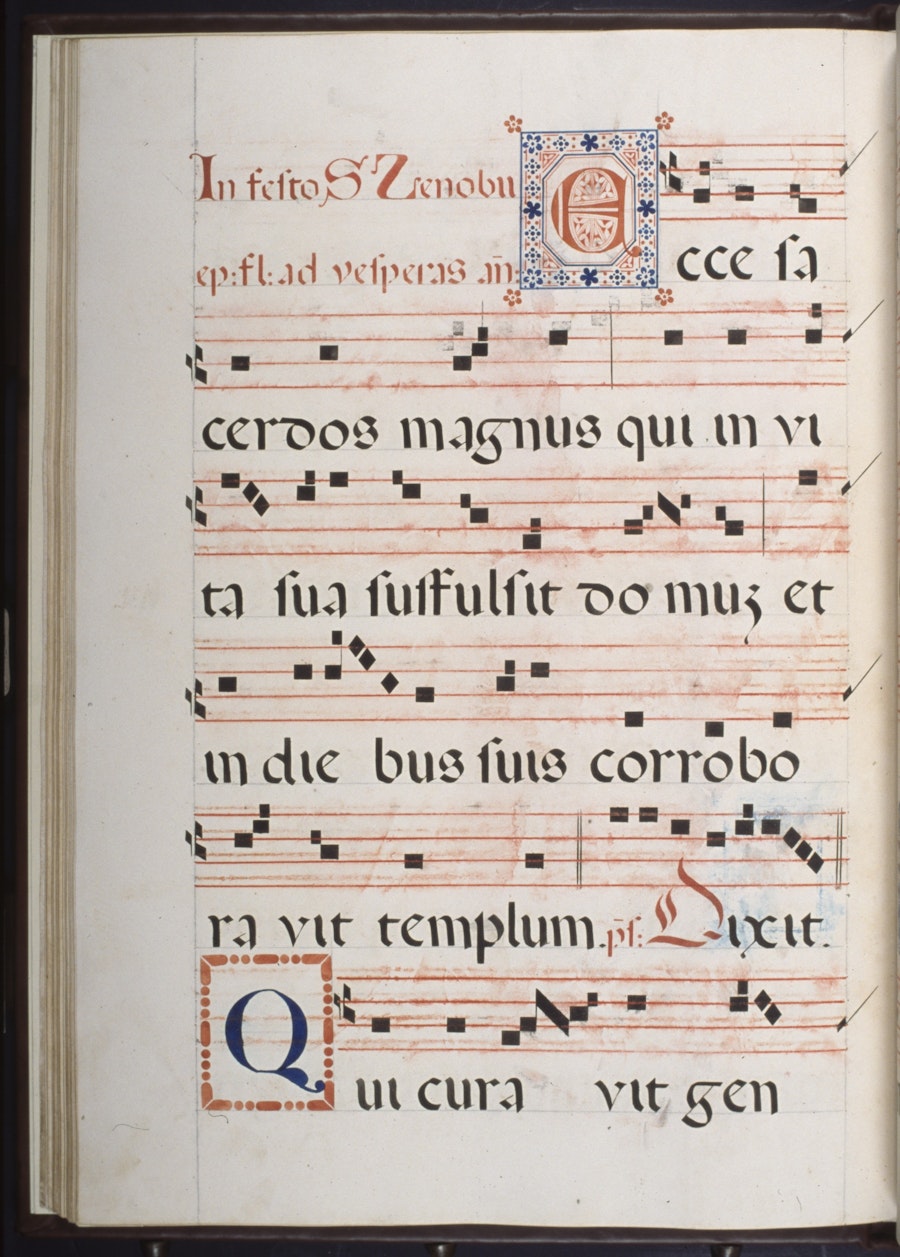 In festo S Zenobii
ep: fl: ad vesperas añ:
Ecce sa
cerdos magnus qui in vi
ta sua suffulsit domuʒ et
in diebus suis corrobo
ravit templum. ps: Dixit.
Qui curavit gen